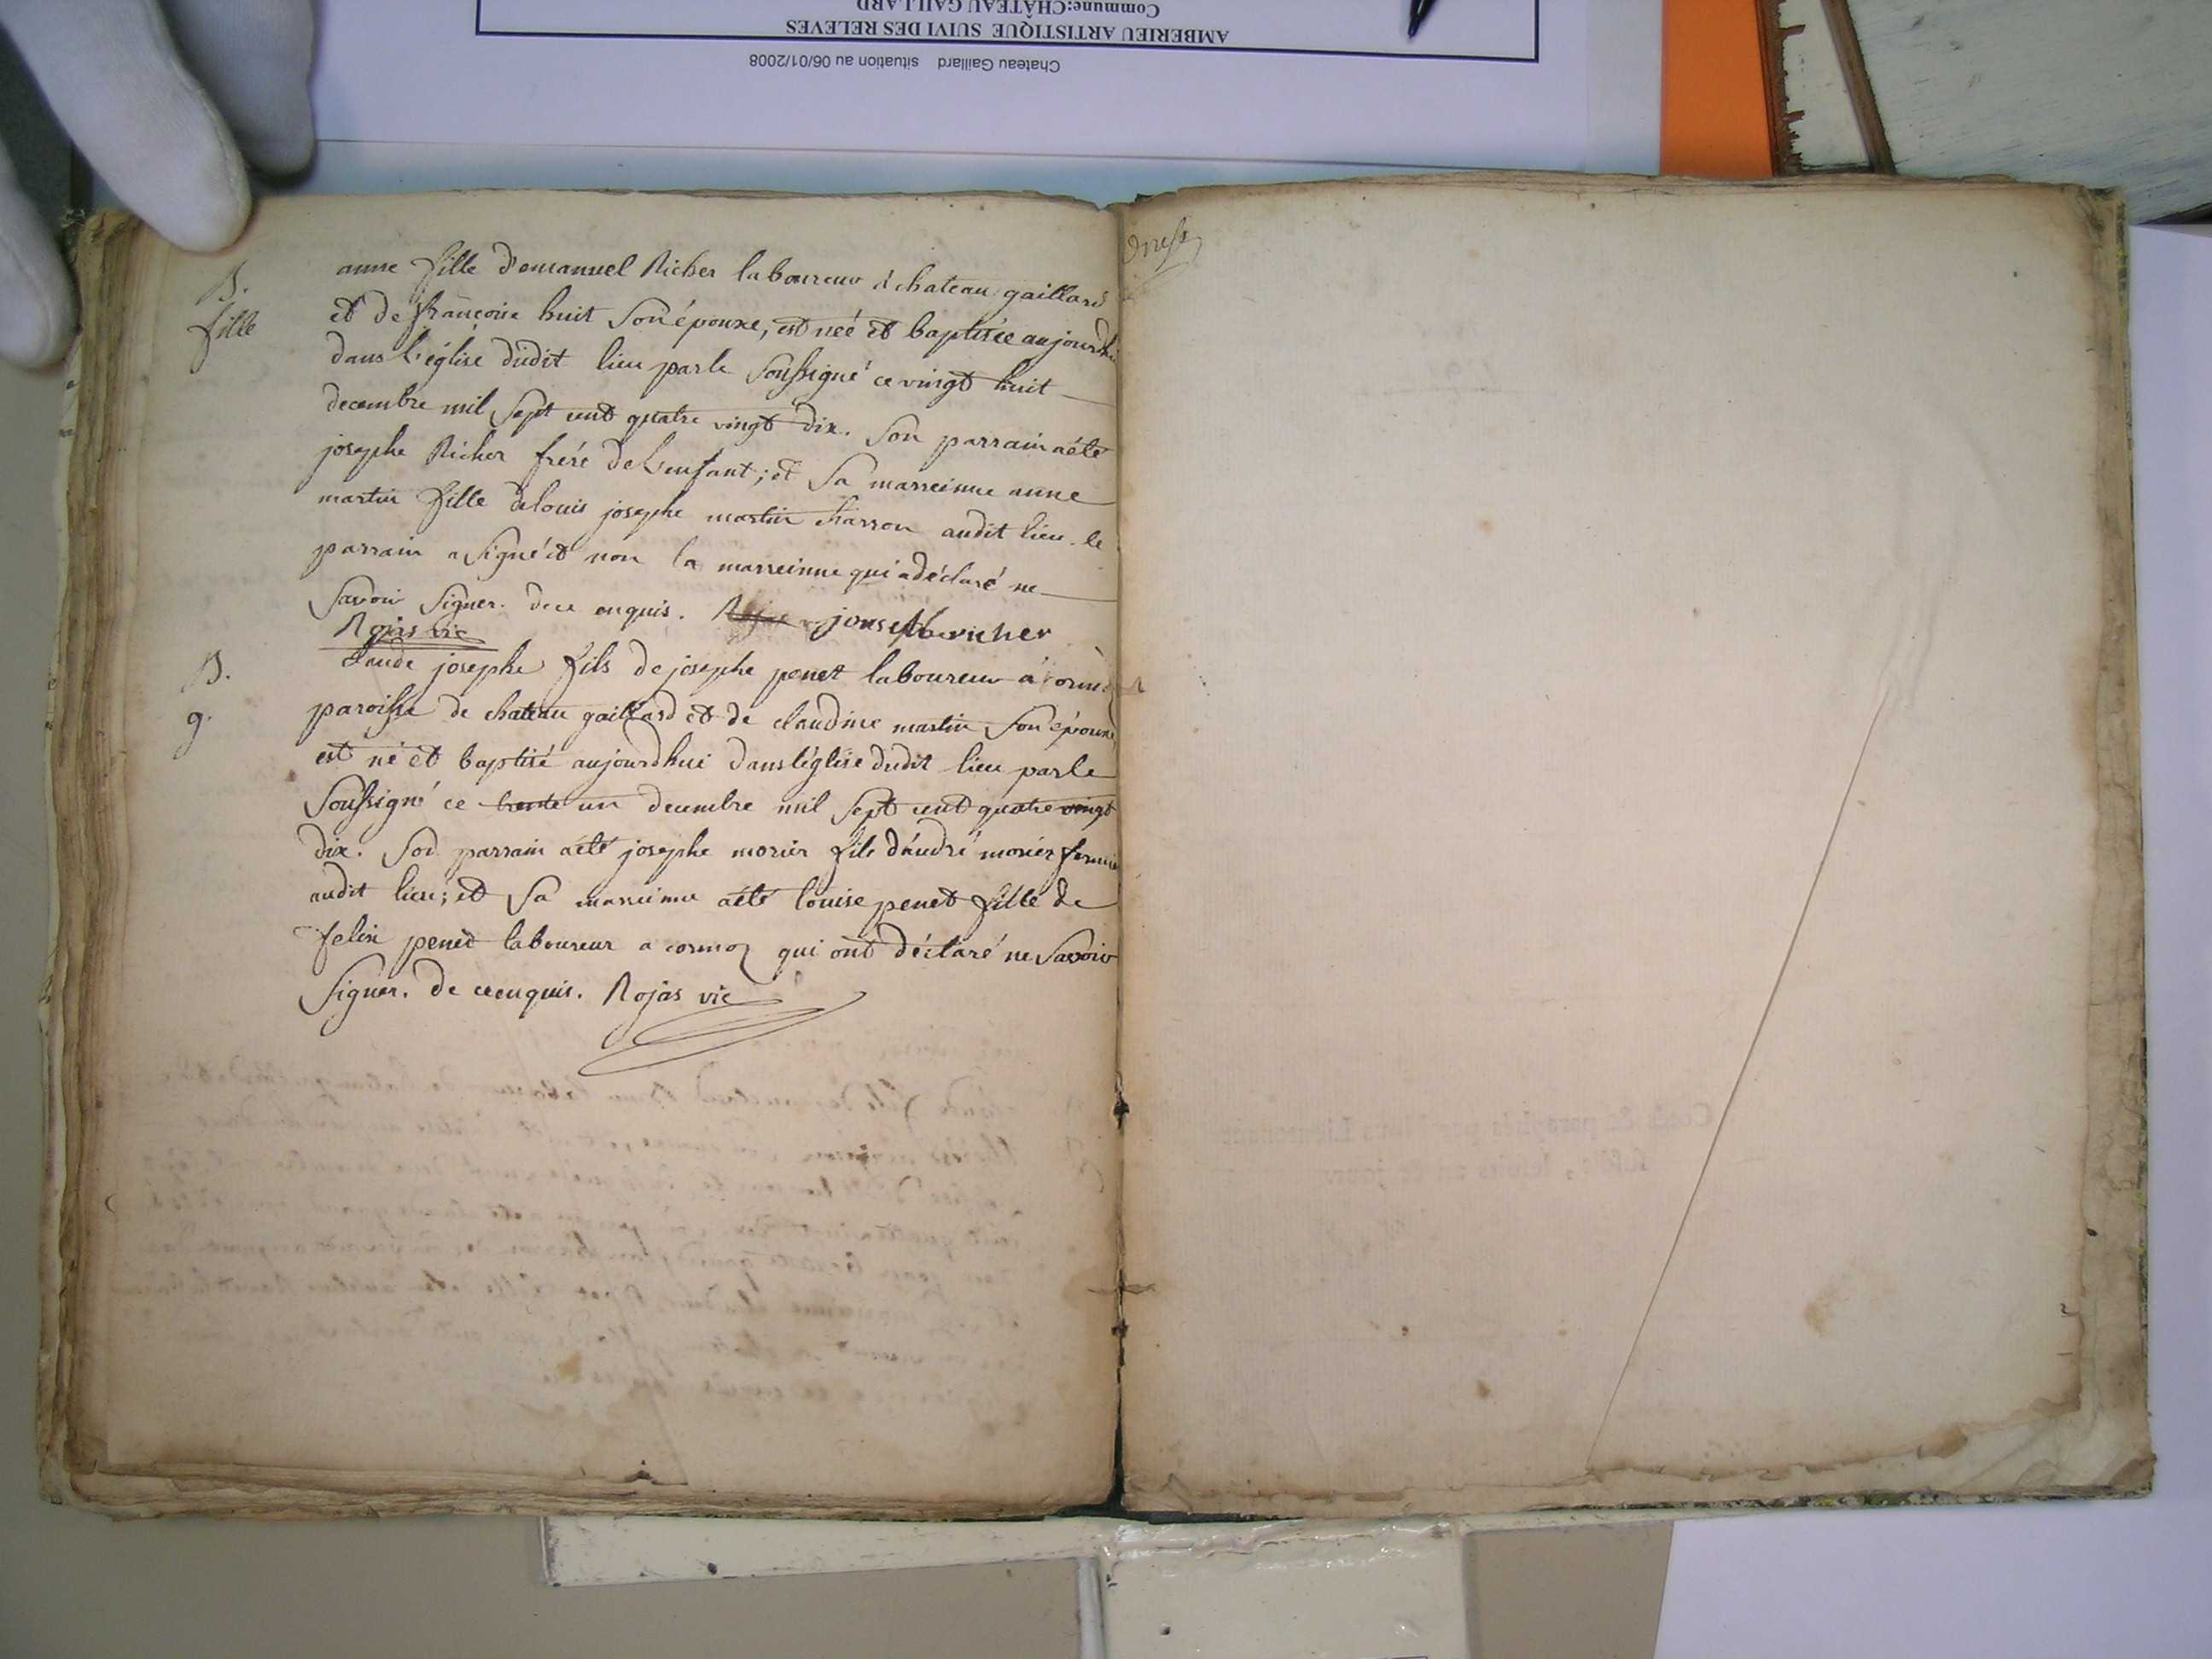 Commune:CHÂTEAU GAILLARD
AMBERIEU ARTISTIQUE SUIVI DES RELEVES
Chateau Gaillard situation au 06/01/2008
B.
fille
anne fille d'emanuel Richer laboureur à chateau gaillard
et de françoise huit son épouse, est neé et baptisée aujourdhui
dans l'église dudit lieu par le soussigné ce vingt huit
decembre mil sept cent quatre vingt dix. Son parrain a été
josephe Richer frére de l'enfant; et sa marreinne anne
martin fille de louis josephe martin charron audit lieu. le
parrain a signé et non la marreinne qui a déclaré ne
savoir signer. de ce enquis. joseph richer
Rojas vic
B.
g.
claude josephe fils de josephe penet laboureur à
paroisse de chateau gaillard et de claudine martin son épouse
est né et baptisé aujourdhui dans l'église dudit lieu par le
soussigné ce trente un decembre mil sept cent quatre vingt
dix. Son parrain a été josephe morier fils d'andré morier
audit lieu; et sa marreinne a été louise penet fille de
felix penet laboureur a cormoz qui ont déclaré ne savoir
signer. de ce enquis. Rojas vic